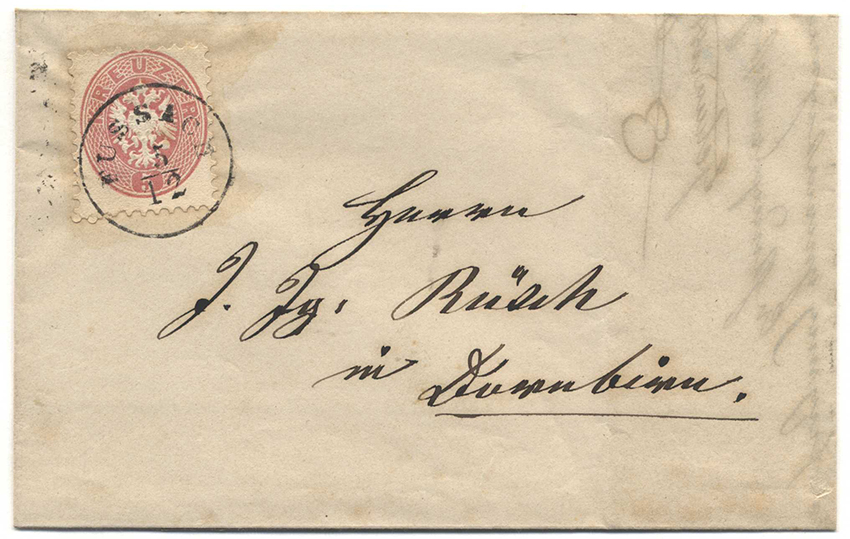 KREUZER
SUSSACK
5
12
Herrn
J. Jg. Rüsch
in Dornbirn.
8